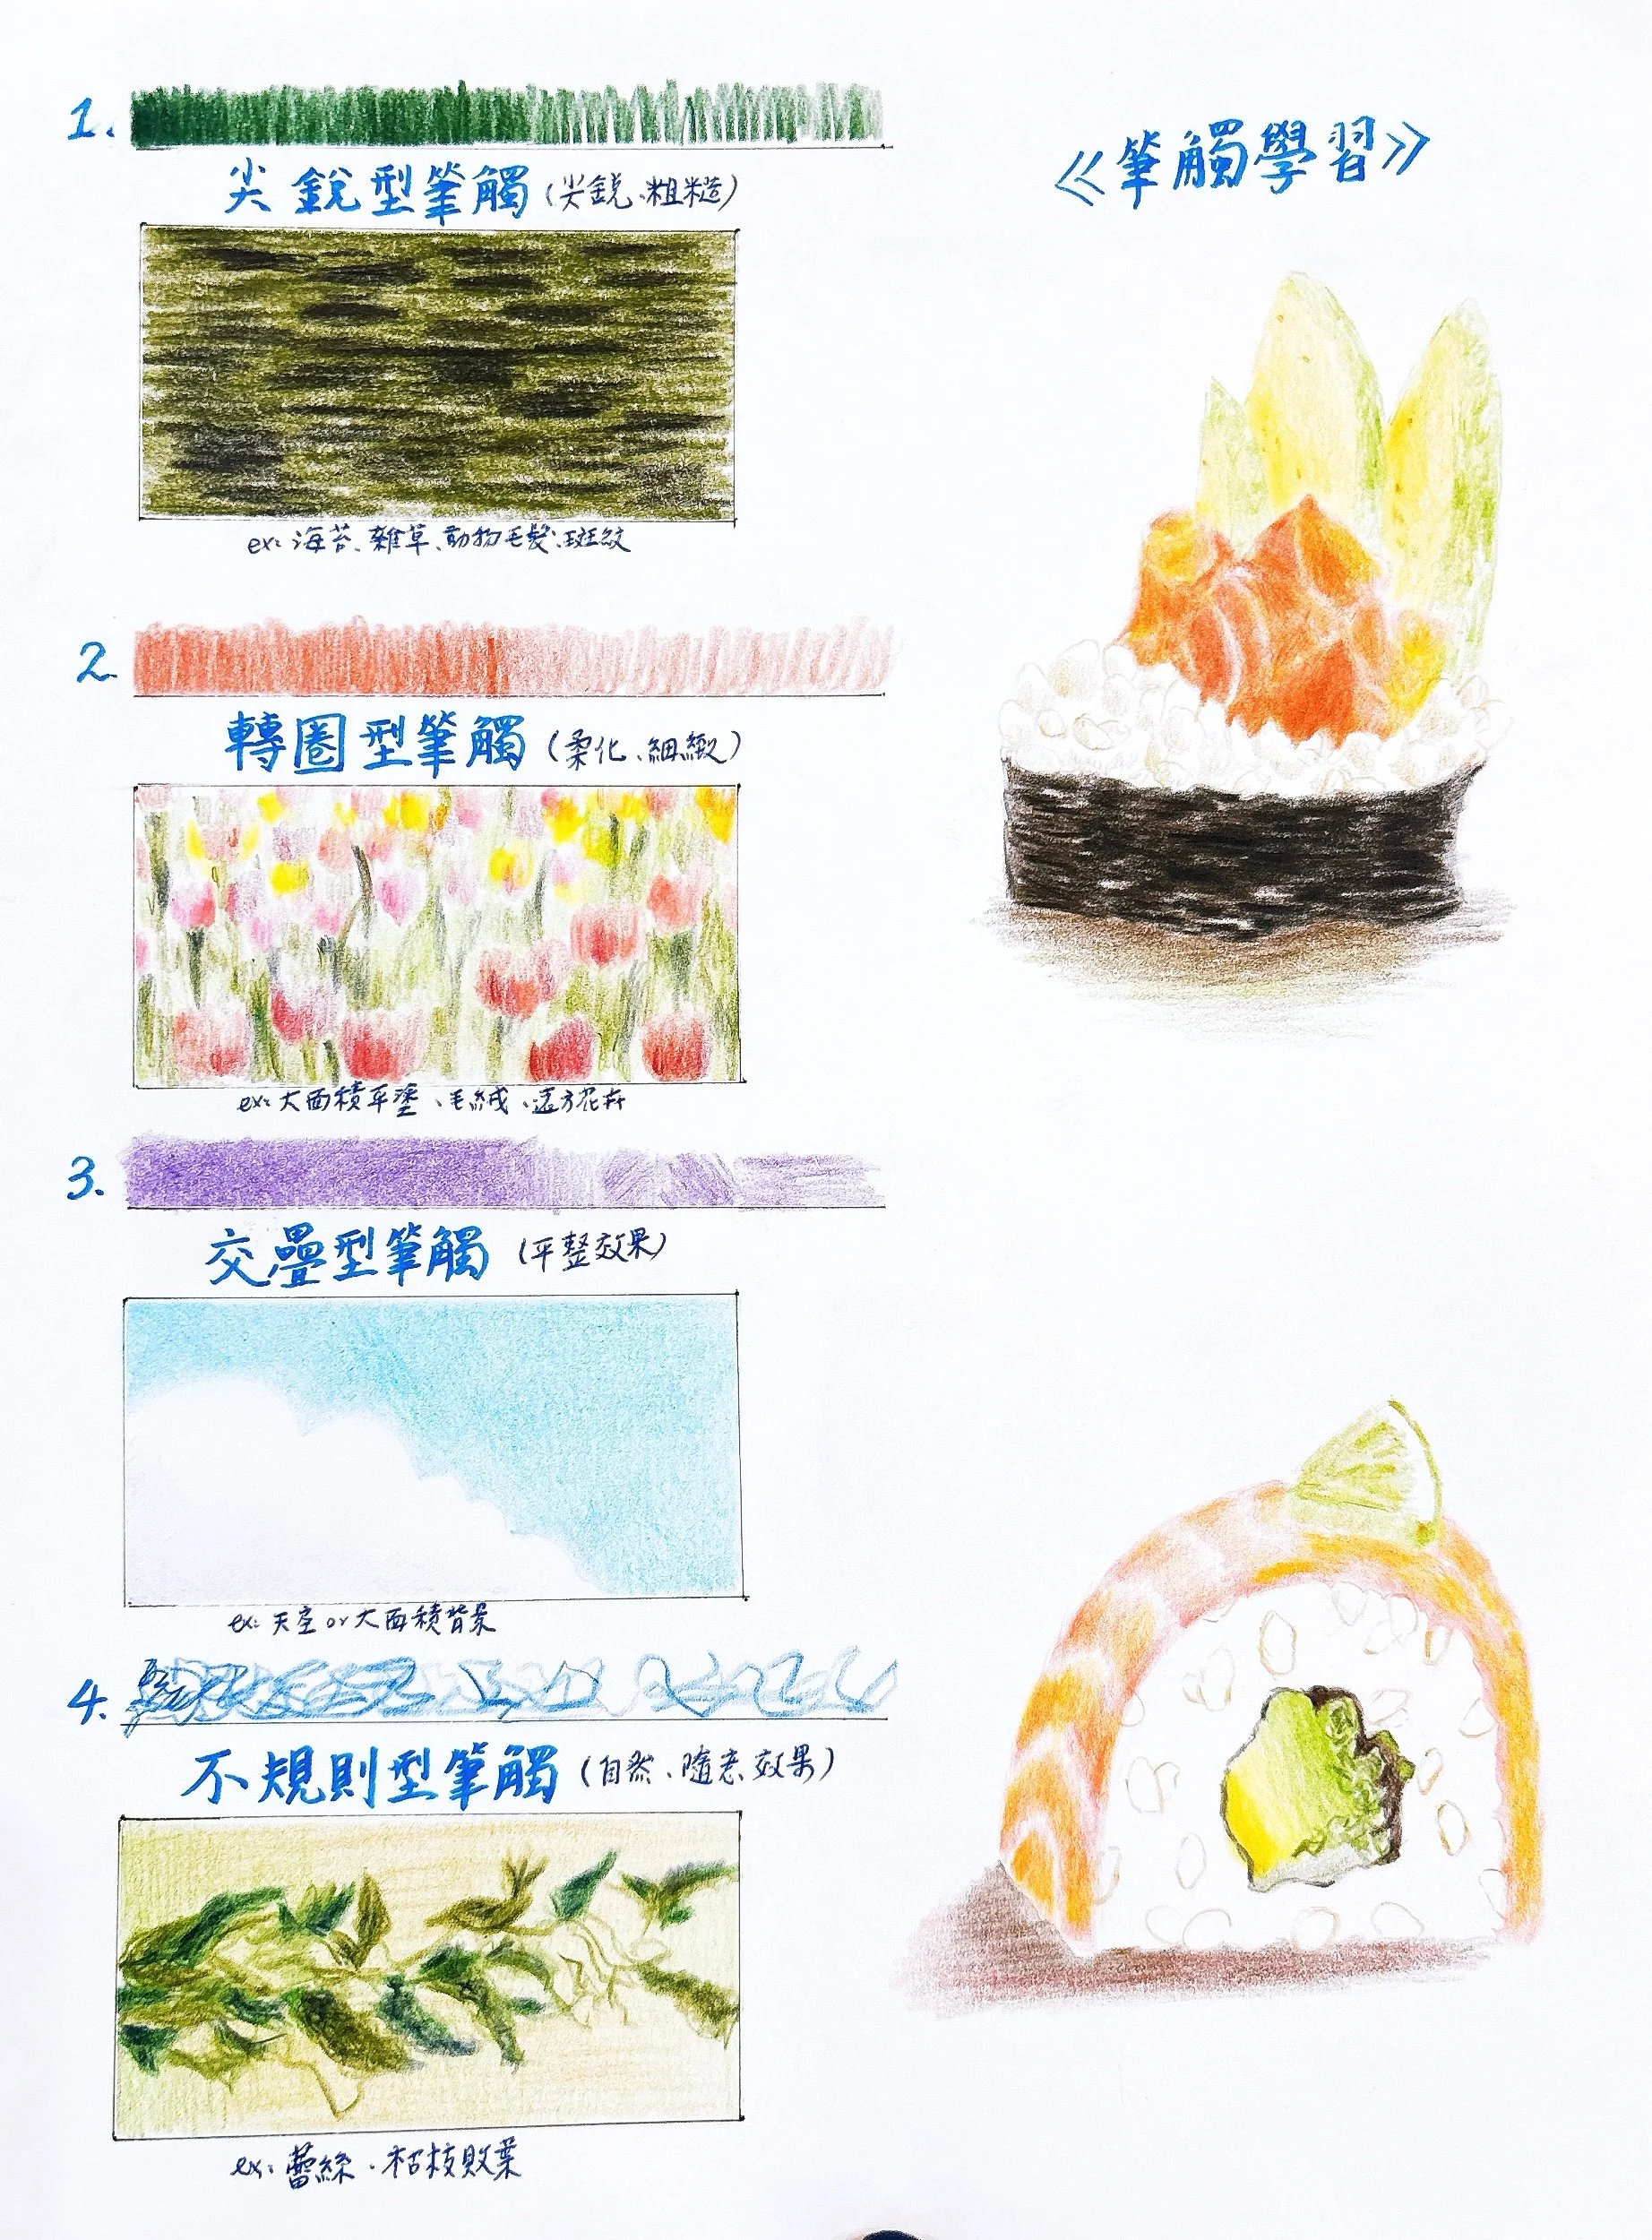 《筆觸學習》
1.
尖銳型筆觸(尖銳、粗糙)
ex: 海苔、雜草、動物毛髮、斑紋
2.
轉圈型筆觸(柔化、細緻)
ex: 大面積平塗、毛絨、遠方花卉
3.
交疊型筆觸(平整效果)
ex: 天空 or 大面積背景
4.
不規則型筆觸(自然、隨意效果)
ex: 蕾絲、枯枝敗葉